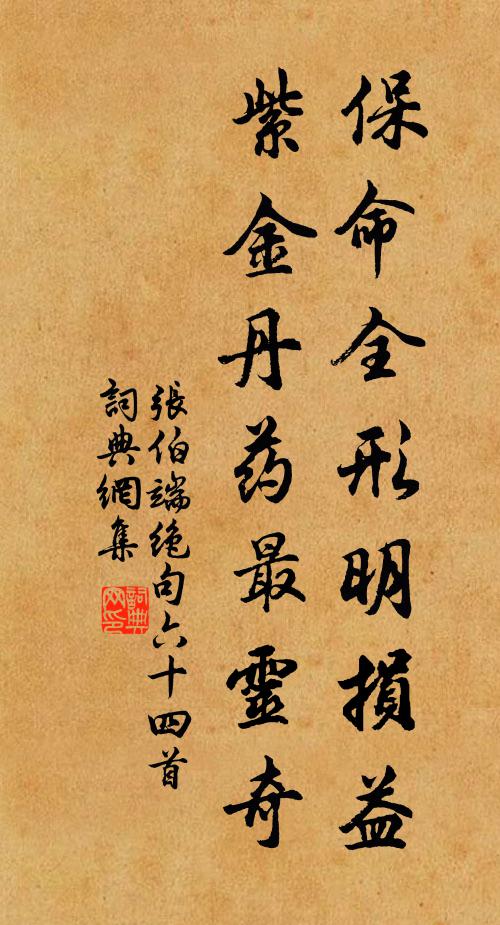 保命全形明損益
紫金丹药最靈奇
張伯端絶句六十四首
詞典網集
詞典
网印